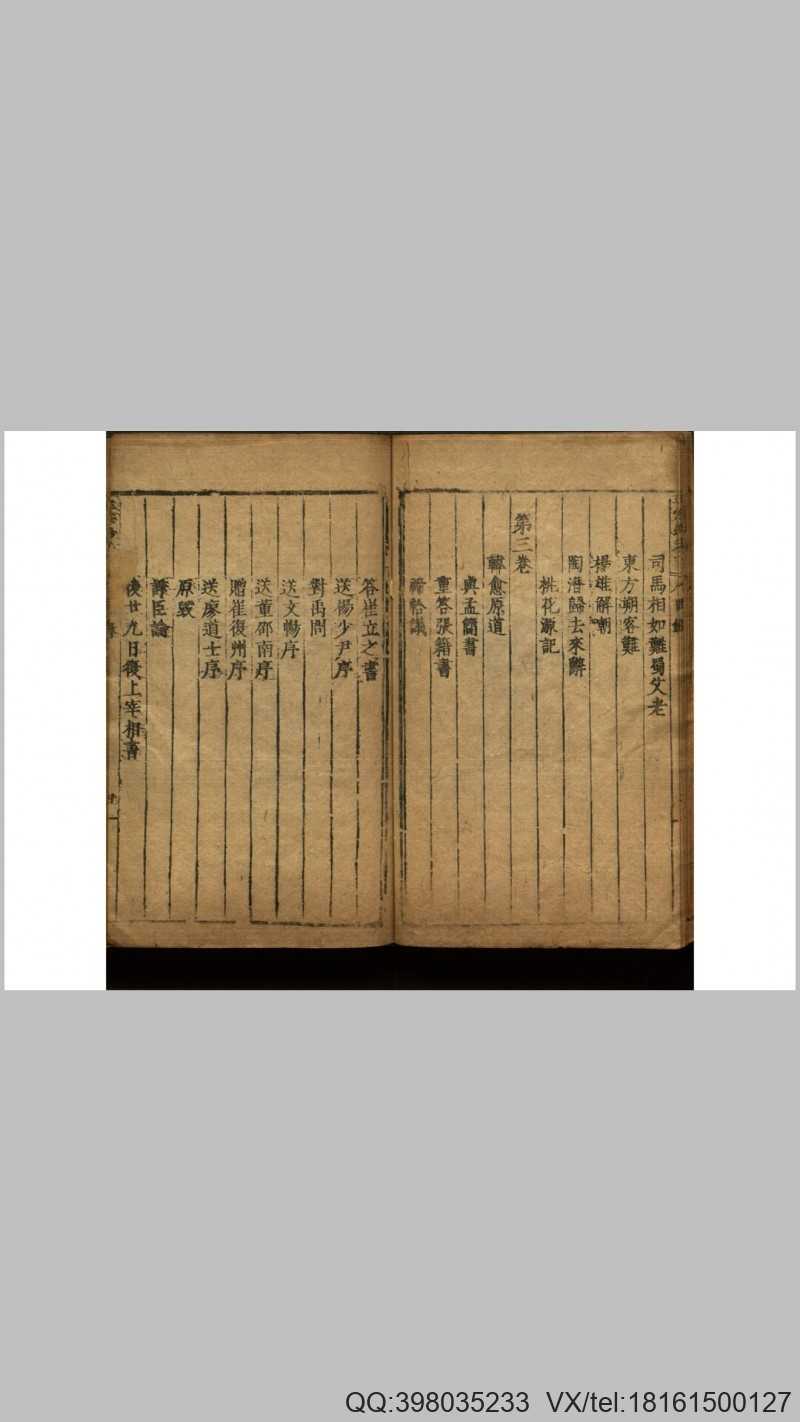 司馬相如難蜀父老
東方朔客難
楊雄解嘲
陶潛歸去來辭
桃花源記
第三卷
韓愈原道
與孟簡書
重答張籍書
禘祫議
答崔立之書
送楊少尹序
對禹問
送文暢序
送董邵南序
贈崔復州序
送廖道士序
原毀
諍臣論
後廿九日復上宰相書
QQ:398035233 VX/tel:18161500127